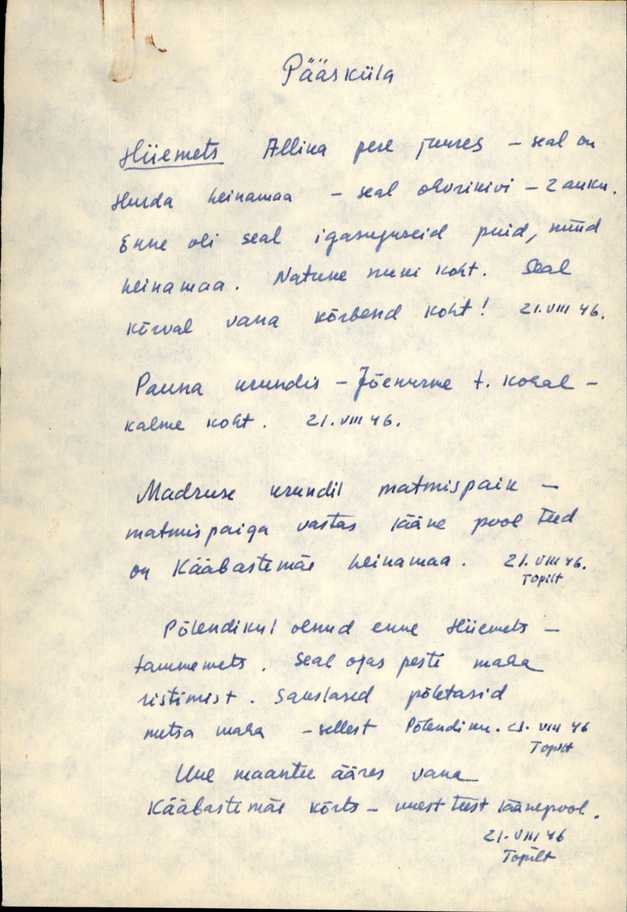 Pääsküla
Hiiemets Allika pere juures – seal on
Hurda heinamaa – seal ohvrikivi – 2 auku.
Enne oli seal igasuguseid puid, nüüd
heinamaa. Natune nuni koht. Seal
kõrval vana kõrbend koht! 21.VIII 46.
Pauna krundis – Jõekurme t. kohal –
kalme koht. 21.VIII 46.
Madruse krundil matmispaik –
matmispaiga vastas lääne pool teed
on Kääbastemäe heinamaa. 21.VIII 46.
Topilt
Põlendikul olnud enne Hiiemets –
tammemets. Seal ojas pesti maha
ristimist. Sauslased põletasid
metsa maha – sellest Põlendiku. 21.VIII 46
Topilt
Uue maantee ääres vana
Kääbastemäe kõrts – uuest teest läänepool.
21.VIII 46
Topilt